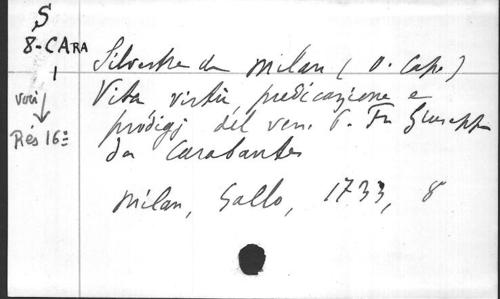 S
8-CARA
1
voir
Rés 16º
Silvestre da Milan (O. Cap.)
Vita virtù, predicazione e
prodigj del ven. P. Fr. Giuseppe
da Carabantes
Milan, Gallo, 1733, 8